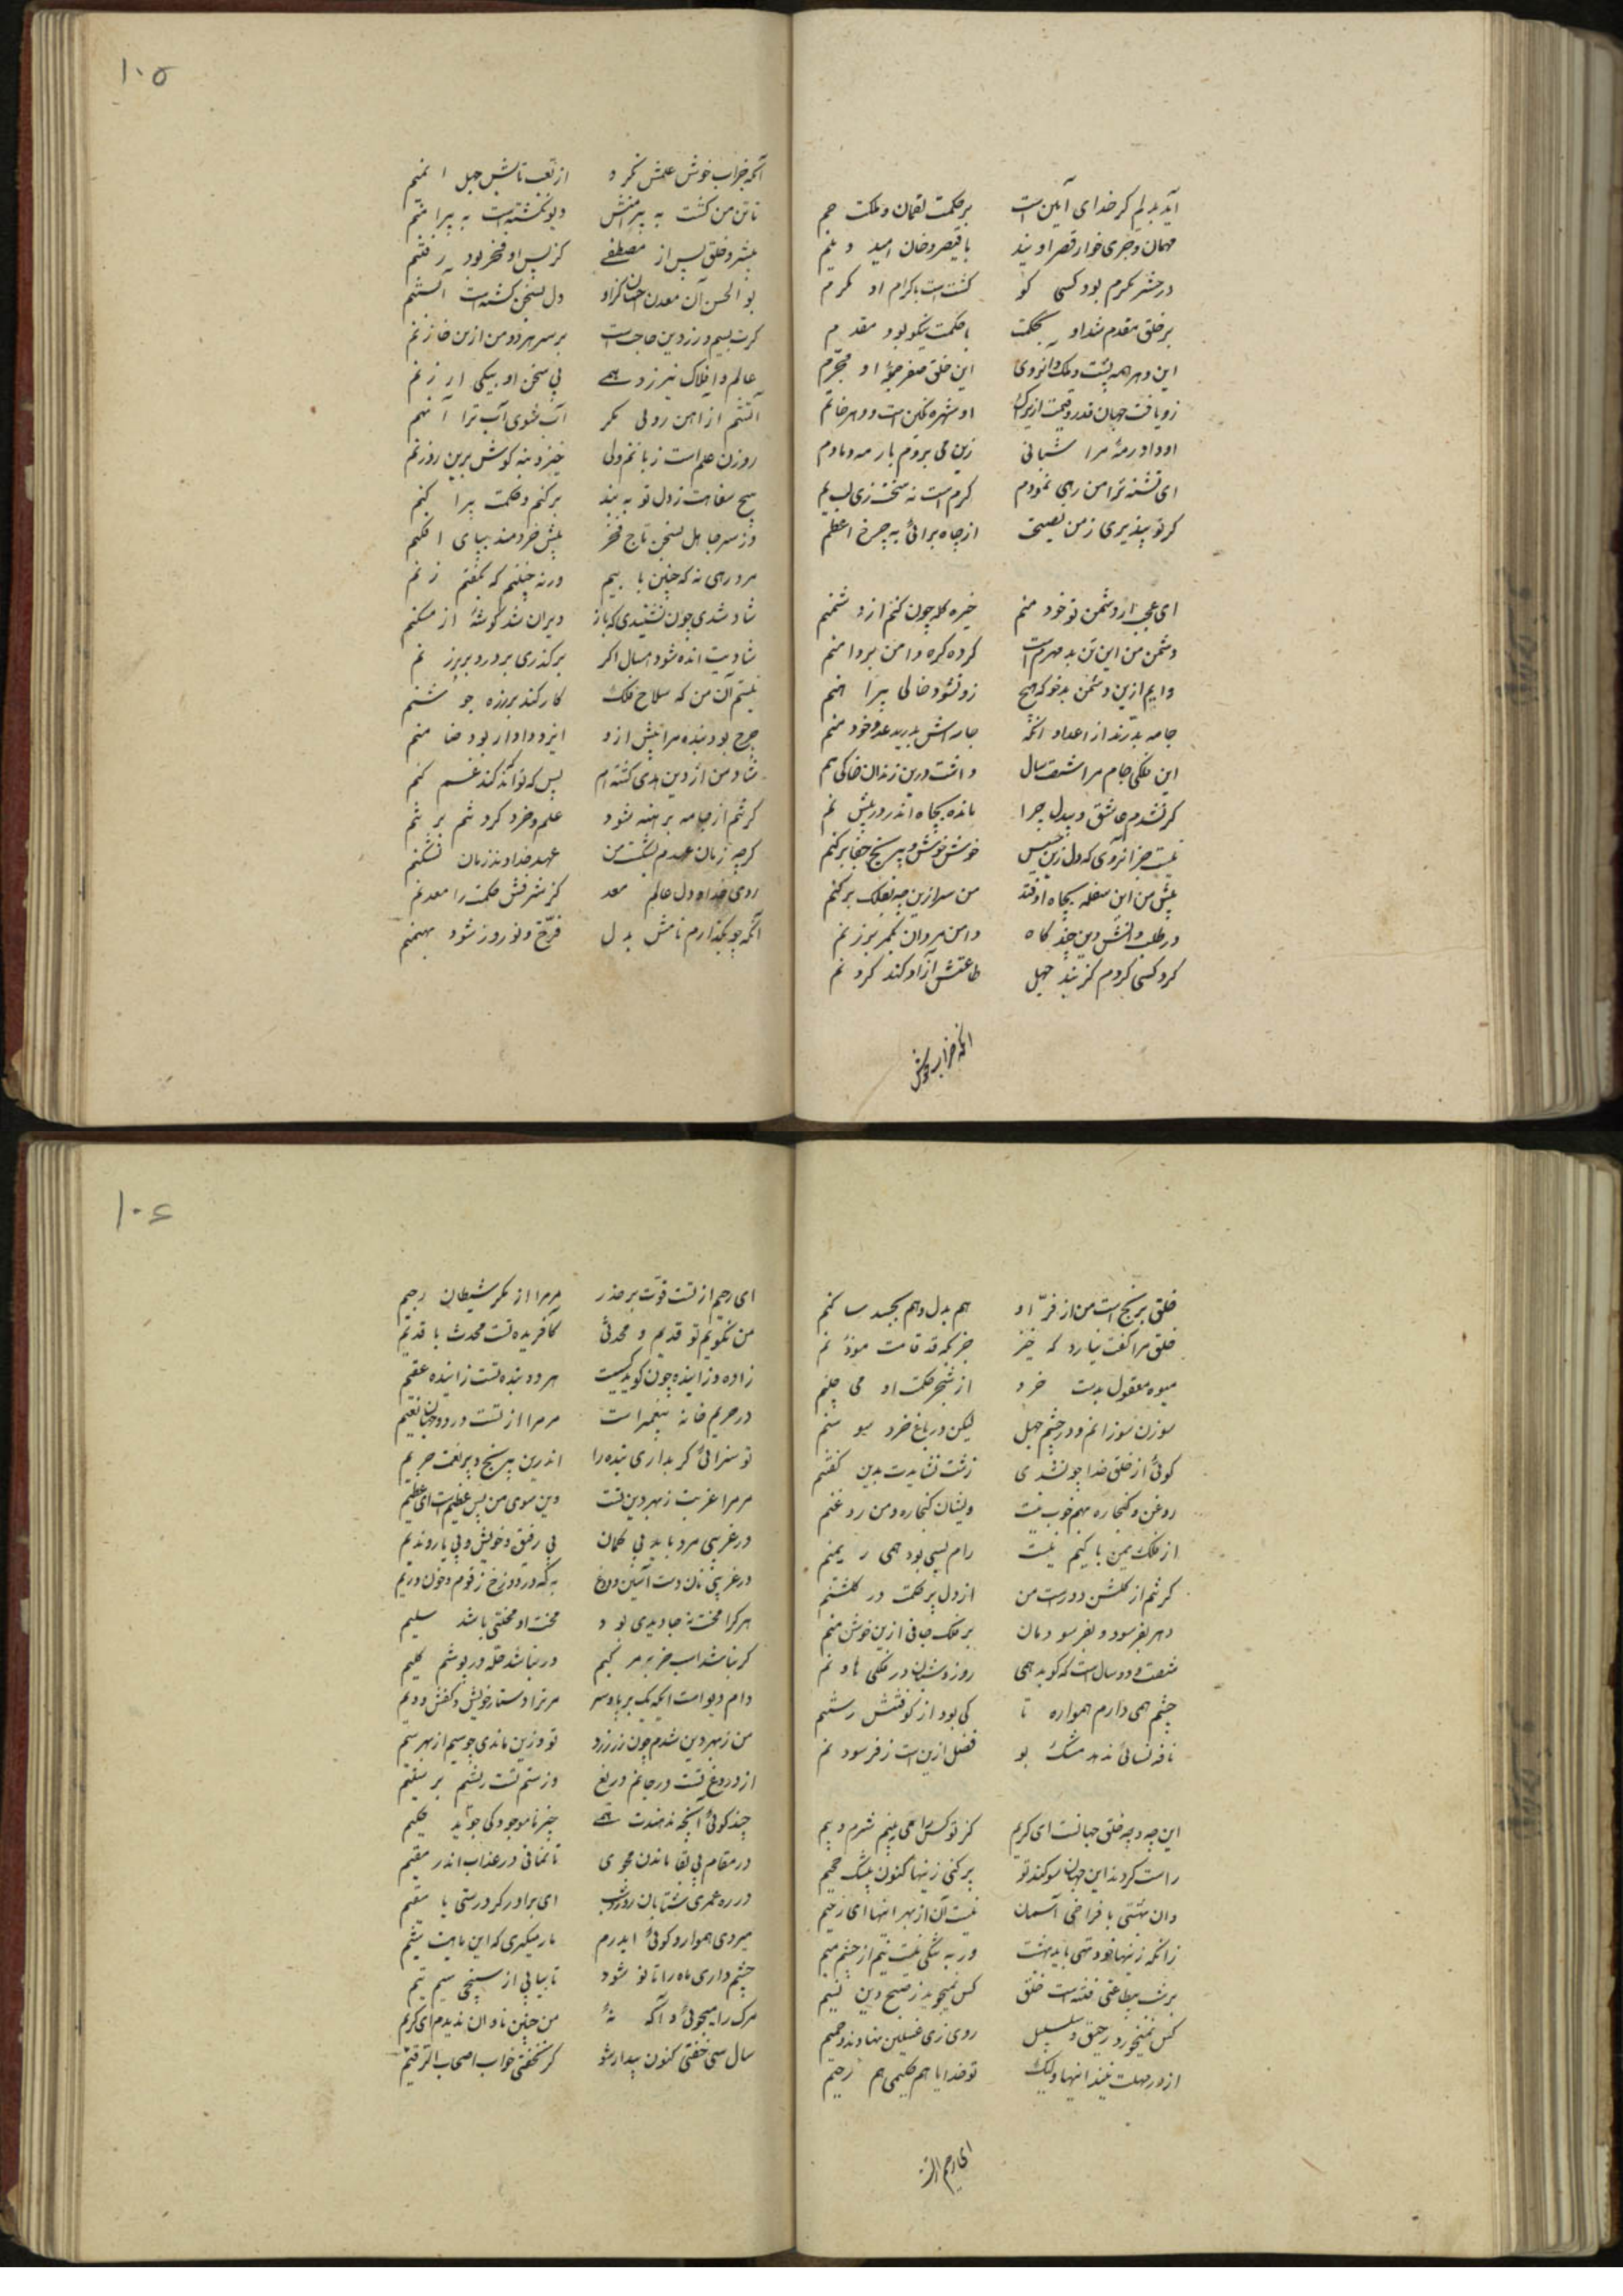 آید بدلم کز خدای آمین است بر حکمت لقمان و ملکت جم
مهمان و جری خوار قصر اویند با قیصر و خان امید و بیم
در حشر مکرم بود کسی کو گشتست باکرام او مکرم
بر خلق مقدم شد او بحکمت با حکمت نیکو بود مقدم
این دهر همه پشت و ملک و او روی این خلق صفر جمله او محرم
زو یافت جهان قدر و قیمت ازیرا او شهره نگین است و دهر خاتم
او داد رمهٔ مرا شبانی زین می نروم با رمه و مادم
ای تشنه ترا من رهی نمودم گرم است نه سخت زی لب یم
گر تو بپذیری ز من نصیحت از چاه برائی به چرخ اعظم
ای عجبی ار دشمن تو خود منم خیره گله چون کنم از دشمنم
دشمن من این تن بد مهرم است کرده گره دامن بر دامنم
وایم ازین دشمن بدخو که هیچ زو نشود خالی پیراهنم
جامه بدرند از اعدا و آنکه جامه‌اش بدرید عدو خود منم
این فلکی جام مرا شصت سال داشت درین زندان خاکی هم
گر نشدم عاشق و بیدل چرا مانده بچاه اندر در بیژنم
نیست جز آن روی که دل زین خسیس خوش خوش و بی رنج و جفا برکنم
پیش من این سفله بچاه اوفتد من سر ازین چه بفلک برکنم
در طلب دانش و دین چند گاه دامن مردان بکمر برزنم
گرد کسی کردم کز بند جهل طاعتش آزاد کند گردنم
آنکه خراب خوش
۱۰۵
آنکه خراب خوش علمش نکرد از تف تابش جهل ایمنم
تا تن من گشت به پیرامنش دیو نگشتست به پیرامنم
بشر و خلق پس از مصطفی کز پس او فخر بود رفتنم
بو الحسن آن معدن احسان کزو دل بسخن گشته است آبستنم
گرت بسیم و زر دین حاجت است بر سر هر دو من ازین خازنم
عالم و افلاک نیرزد همی بی سخن او بیکی ارزنم
آتشم از آهن رو لی مگر آب شوی آب ترا آهنم
روزن علم است زبانم ولی خیز و بنه گوش برین روزنم
بیخ سفاهت ز دل تو به پند برکنم و حکمت پیراکنم
وز سر جاهل بسخن تاج فخر پیش خردمند بپای افکنم
مرد رهی نه که چنین با بیم ورنه چنینم که بگفتم زنم
شاد شدی چون بشنیدی که باز ویران شد گوشهٔ از مسکنم
شادیت انده شود امسال اگر برگذری بر در و بر برزنم
نیستم آن من که سلاح فلک کار کند بر زره و جوشنم
چرخ بود بنده مرا پیش ازو ایزد دادار بود ضامنم
شاد من از دین هدی گشته‌ام پس که تواند که کند غمگنم
گر تنم از جامه برهنه شود علم و خرد گرد تنم برتنم
گرچه زمان عهدم بشکست من عهد خداوند زمان نشکنم
روی خدا و دل عالم معد کز شرفش حکمت را معدنم
آنکه چو بگذارم نامش بدل فرخ و نوروز شود بهمنم
خلق برنج است من از فر او هم بدل و هم بجسد ساکنم
خلق مرا گفت نیارد که خیز جز بگه قد قامت موذنم
میوهٔ معقول بدست خرد از شجر حکمت او می چنم
سوزن سوزانم در چشم جهل لیکن در باغ خرد سوسنم
گوئی از خلق خدا چون شدی زشت نشایدت بدین گفتنم
روغن و کنجاره بهم خوب نیست ویشان کنجاره و من روغنم
از فلک یمن باکیم نیست رام بسی بود همی ریمنم
گر تنم از گلشن دور است من از دل پر حکمت در گلشنم
دهر بفرسود و بفرسودمان بر فلک جافی ازین خوش منم
شصت و دو سال است که کوبد همی روز و شبان در فلکی هاونم
چشم همی دارم همواره تا کی بود از کوفتنش رستنم
نافه نسائی ندهد مشک بو فضل ازین است ز فرسودنم
این چه و چه خلق جهانست ای کریم کز تو کس را می نبینم شرم و بیم
راست کردند این جهان سوگند تو پر کنی زینها کنون بیشک جحیم
وان بهشتی با فراخی آسمان نیست آن از بهر اینها ای رحیم
زانکه زینها خود تهی باید بهشت ور به تنگی نیست نیم از چشم میم
بر شب بیطاعتی فتنه است خلق کس نمیجوید ز صبح دین نسیم
کس نمیخورد رحیق و سلسبیل روی زی غسلین نهادند و حمیم
از در مهلت نیند اینها ولیک تو خدایا هم حکیمی هم رحیم
ای رحیم از تست
۱۰۶
ای رحیم از تست قوت بر حذر مر مرا از مکر شیطان رجیم
من نگویم تو قدیم و محدثی کآفریدهٔ تست محدث با قدیم
زاده و زاینده چون گوید کسیت هر دو بندهٔ تست زاینده عقیم
در حریم خانهٔ پیغمبر است مر مرا از تست در دو جهان نعیم
تو سزائی گر بداری بنده را اندرین بی رنج و پر نعمت حریم
مر مرا غربت ز بهر دین تست وین سوی من بس عظیمست ای عظیم
در غریبی مرد باید بی گمان بی رفیق و خویش و بی یار و ندیم
در غریبی نان دست آسین و دوغ به که در دوزخ زقوم و خون و ریم
هر کرا محنت نه جاویدی بود محنت او محنتی باشد سلیم
گر نباشد اسب خر بر مر کیم ور نباشد حله در پوشم گلیم
دام دیو است ای که بر پا و سر مر ترا دستار خویش و کفش و دیم
من ز بهر دین شدم چون زر زرد تو ز دین ماندی چو سیم از بهر سیم
از دروغ تست در جانم دریغ وز ستم تست ریشم بر ستیم
چند گوئی آنچه نه هستت همی چیز ناموجود کی جوید حکیم
در مقام بی بقا ماندن مجوی تا نمانی در عذاب اندر مقیم
در ره عمری شتابان روز و شب ای برادر گر درستی یا سقیم
میروی هموار و گوئی ایدرم مار میگیری که این ماهیست شیم
چشم داری ماه را تا نو شود تا بیابی از سپنجی سیم تیم
مرگ را میجوئی و آگه نهٔ من چنین نادان ندیدم ای کریم
سال سی خفتی کنون بیدار شو گر نخفتی خواب اصحاب الرقیم